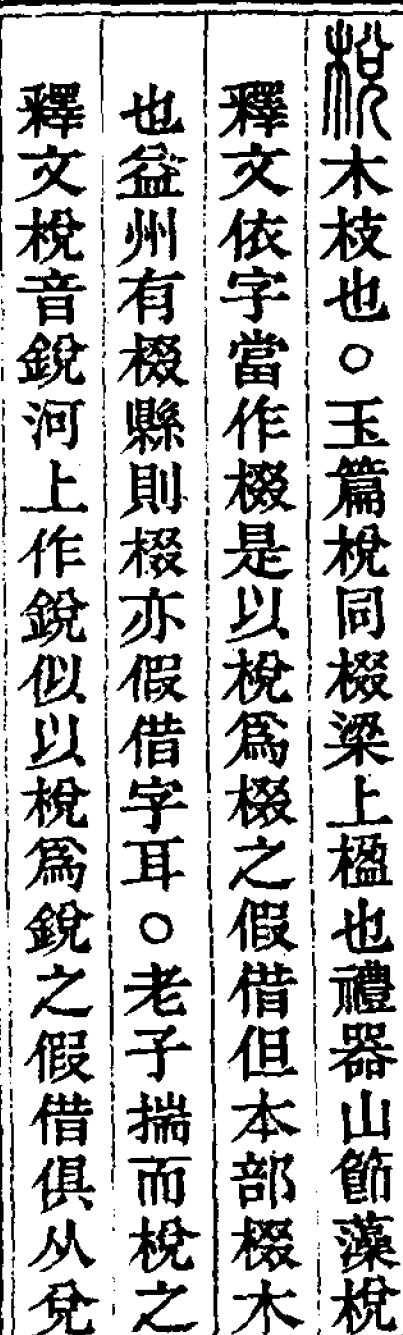 梲木枝也○玉篇梲同棳梁上楹也禮器山節藻梲
釋文依字當作棳是以梲爲棳之假借但本部棳木
也益州有棳縣則棳亦假借字耳○老子揣而梲之
釋文梲音銳河上作銳似以梲爲銳之假借俱从兌